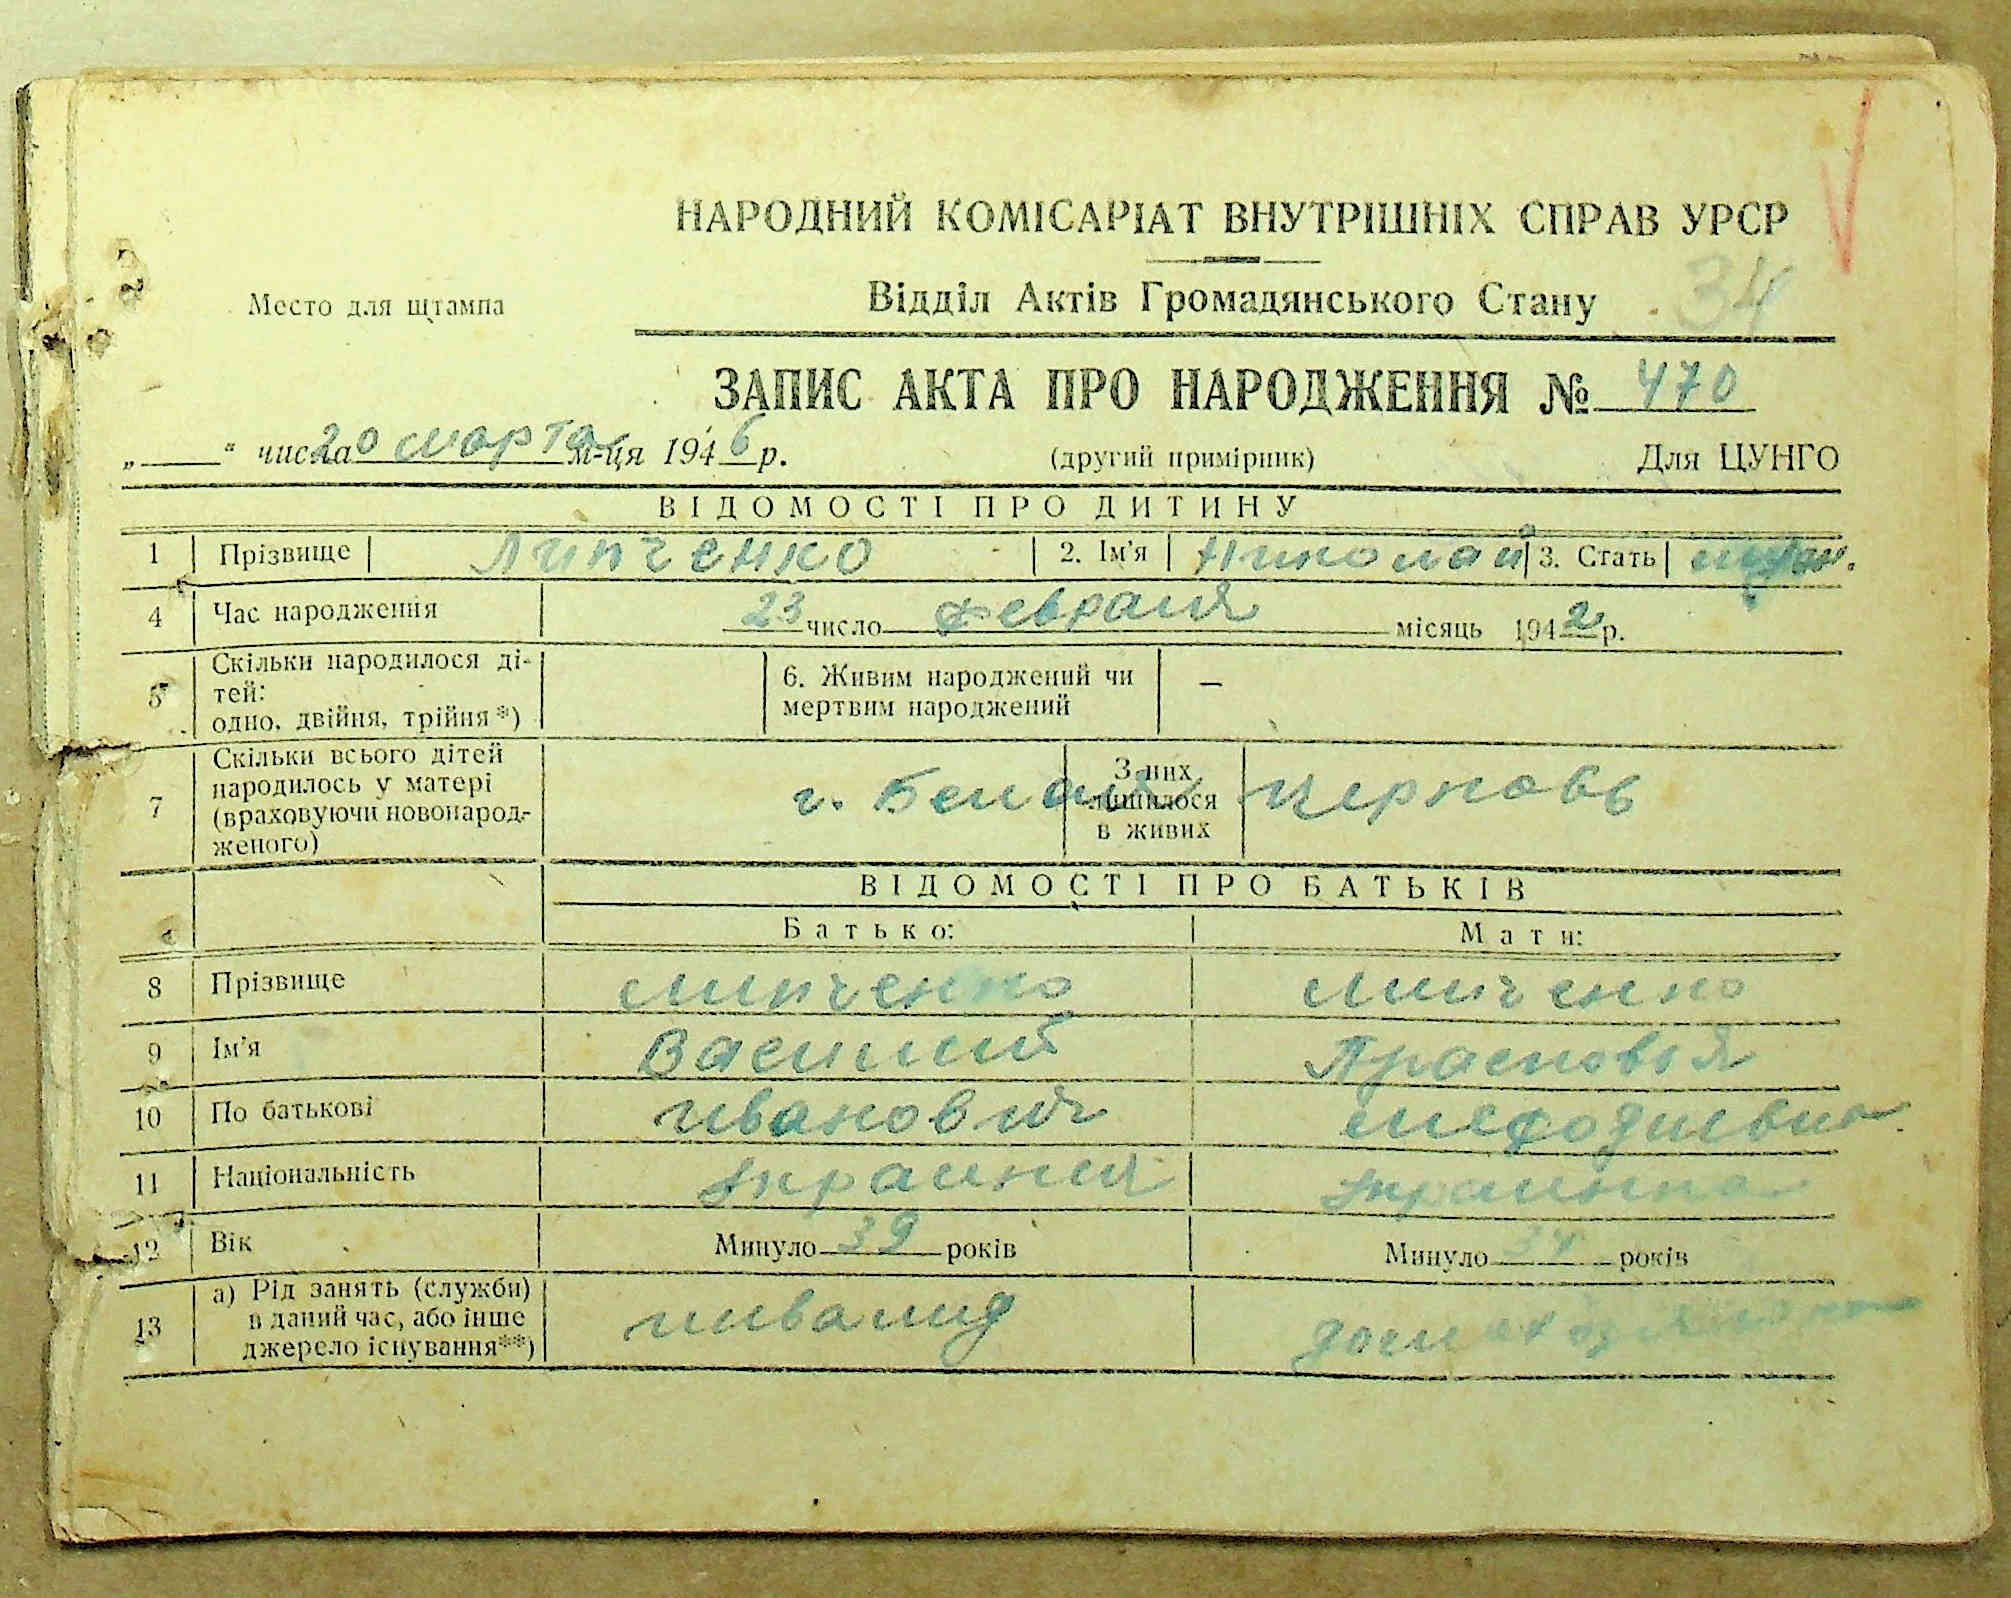 НАРОДНИЙ КОМІСАРІАТ ВНУТРІШНІХ СПРАВ УРСР
Место для штампа
Відділ Актів Громадянського Стану 34
ЗАПИС АКТА ПРО НАРОДЖЕННЯ № 470
„ “ числа 20 марта м-ця 1946 р. (другий примірник) Для ЦУНГО
ВІДОМОСТІ ПРО ДИТИНУ
1 Прізвище Липченко 2. Ім'я Николай 3. Стать муж.
4 Час народження 23 число февраля місяць 1942 р.
5 Скільки народилося ді-
тей:
одно, двійня, трійня*)
6. Живим народжений чи
мертвим народжений —
7 Скільки всього дітей
народилось у матері
(враховуючи новонарод-
женого)
г. Белая Церковь
З них
лишилося
в живих
ВІДОМОСТІ ПРО БАТЬКІВ
Батько: Мати:
8 Прізвище Липченко Липченко
9 Ім'я Василий Прасковья
10 По батькові Иванович Мефодиевна
11 Національність украинец украинка
12 Вік Минуло 39 років Минуло 34 років
13 а) Рід занять (служби)
в даний час, або інше
джерело існування**)
инвалид домохозяйка